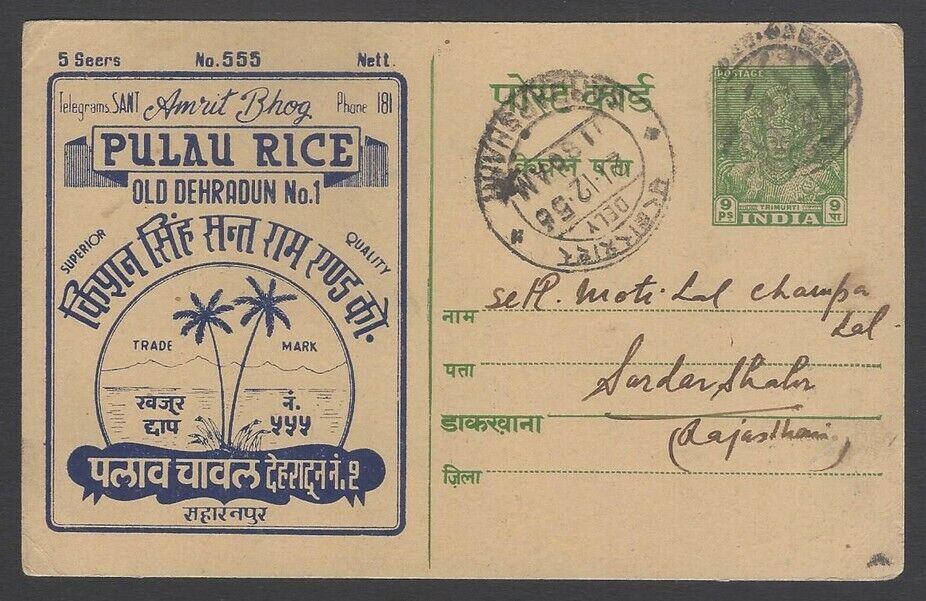 5 Seers No. 555 Nett.
Telegrams. SANT Amrit Bhog Phone 181
PULAU RICE
OLD DEHRADUN No.1
SUPERIOR QUALITY
किशन सिंह सन्त राम एण्ड को.
TRADE MARK
खजूर नं.
छाप ५५५
पलाव चावल देहरादून नं. १
सहारनपुर
पोस्ट कार्ड
केवल पता
POSTAGE
TRIMURTI
9 ps INDIA 9 पा
SARDARSHAHR
DELY
Seth. Moti Lal Champa
Lal.
नाम
पता Sardarshahr
डाकखाना (Rajasthan)
ज़िला